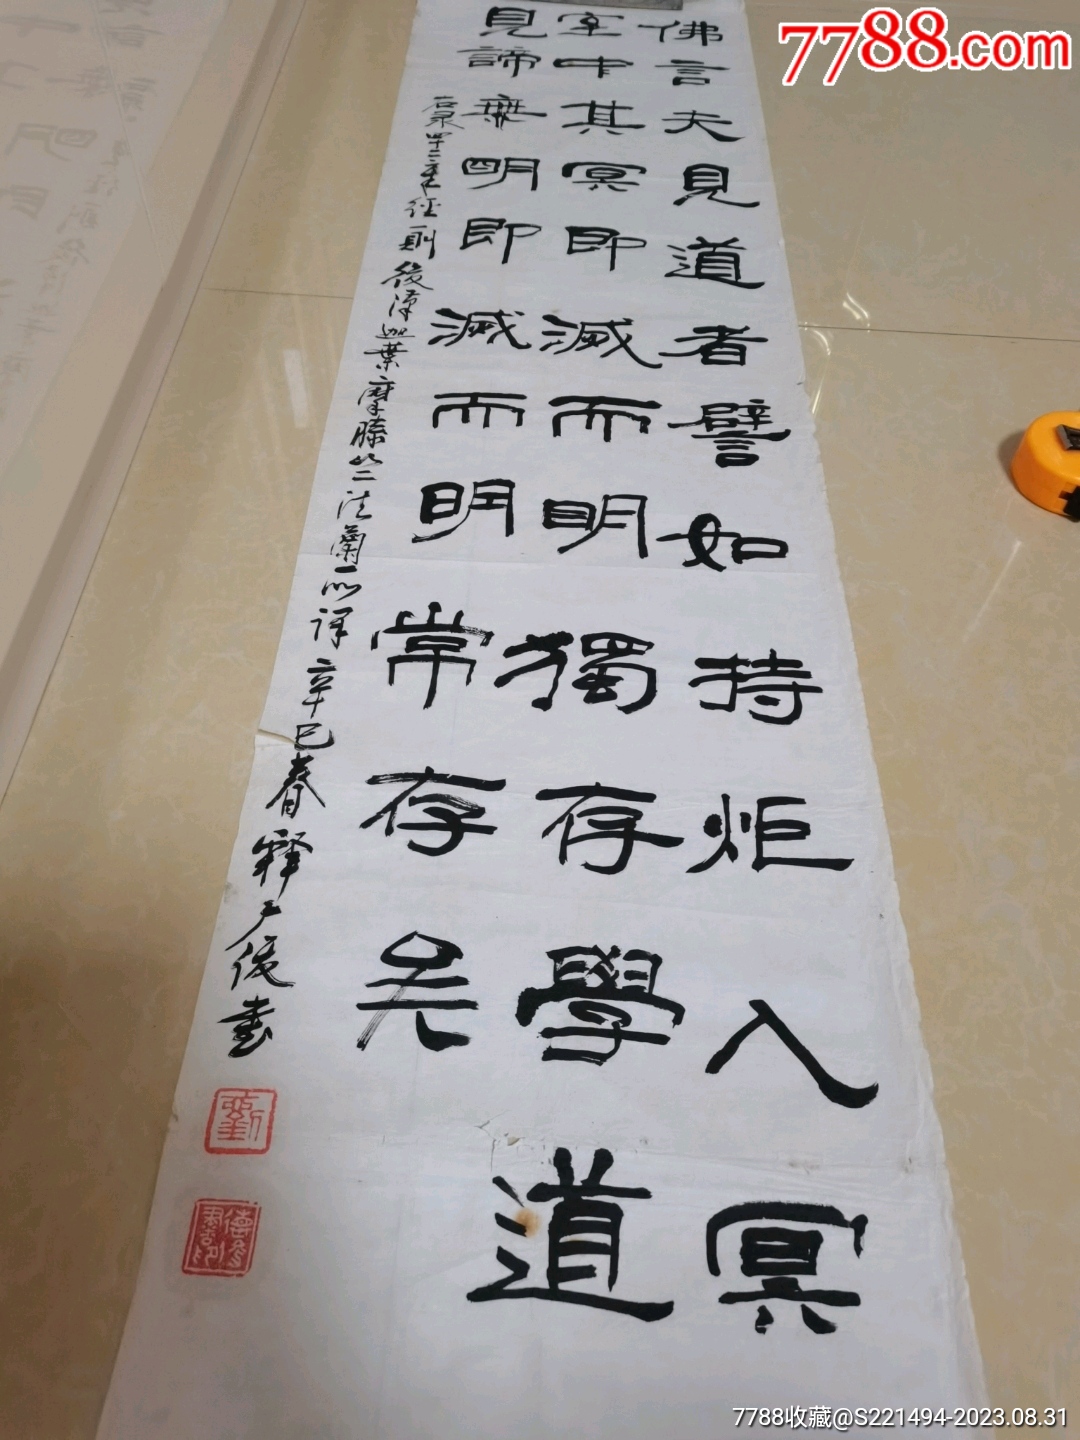 7788.com
佛言夫見道者譬如持炬入冥
室中其冥即滅而明獨存學道
見諦無明即滅而明常存矣
右录四十二章经一則後漢迦葉摩騰竺法蘭所譯辛巳春釋俊書
劉
7788收藏@S221494-2023.08.31